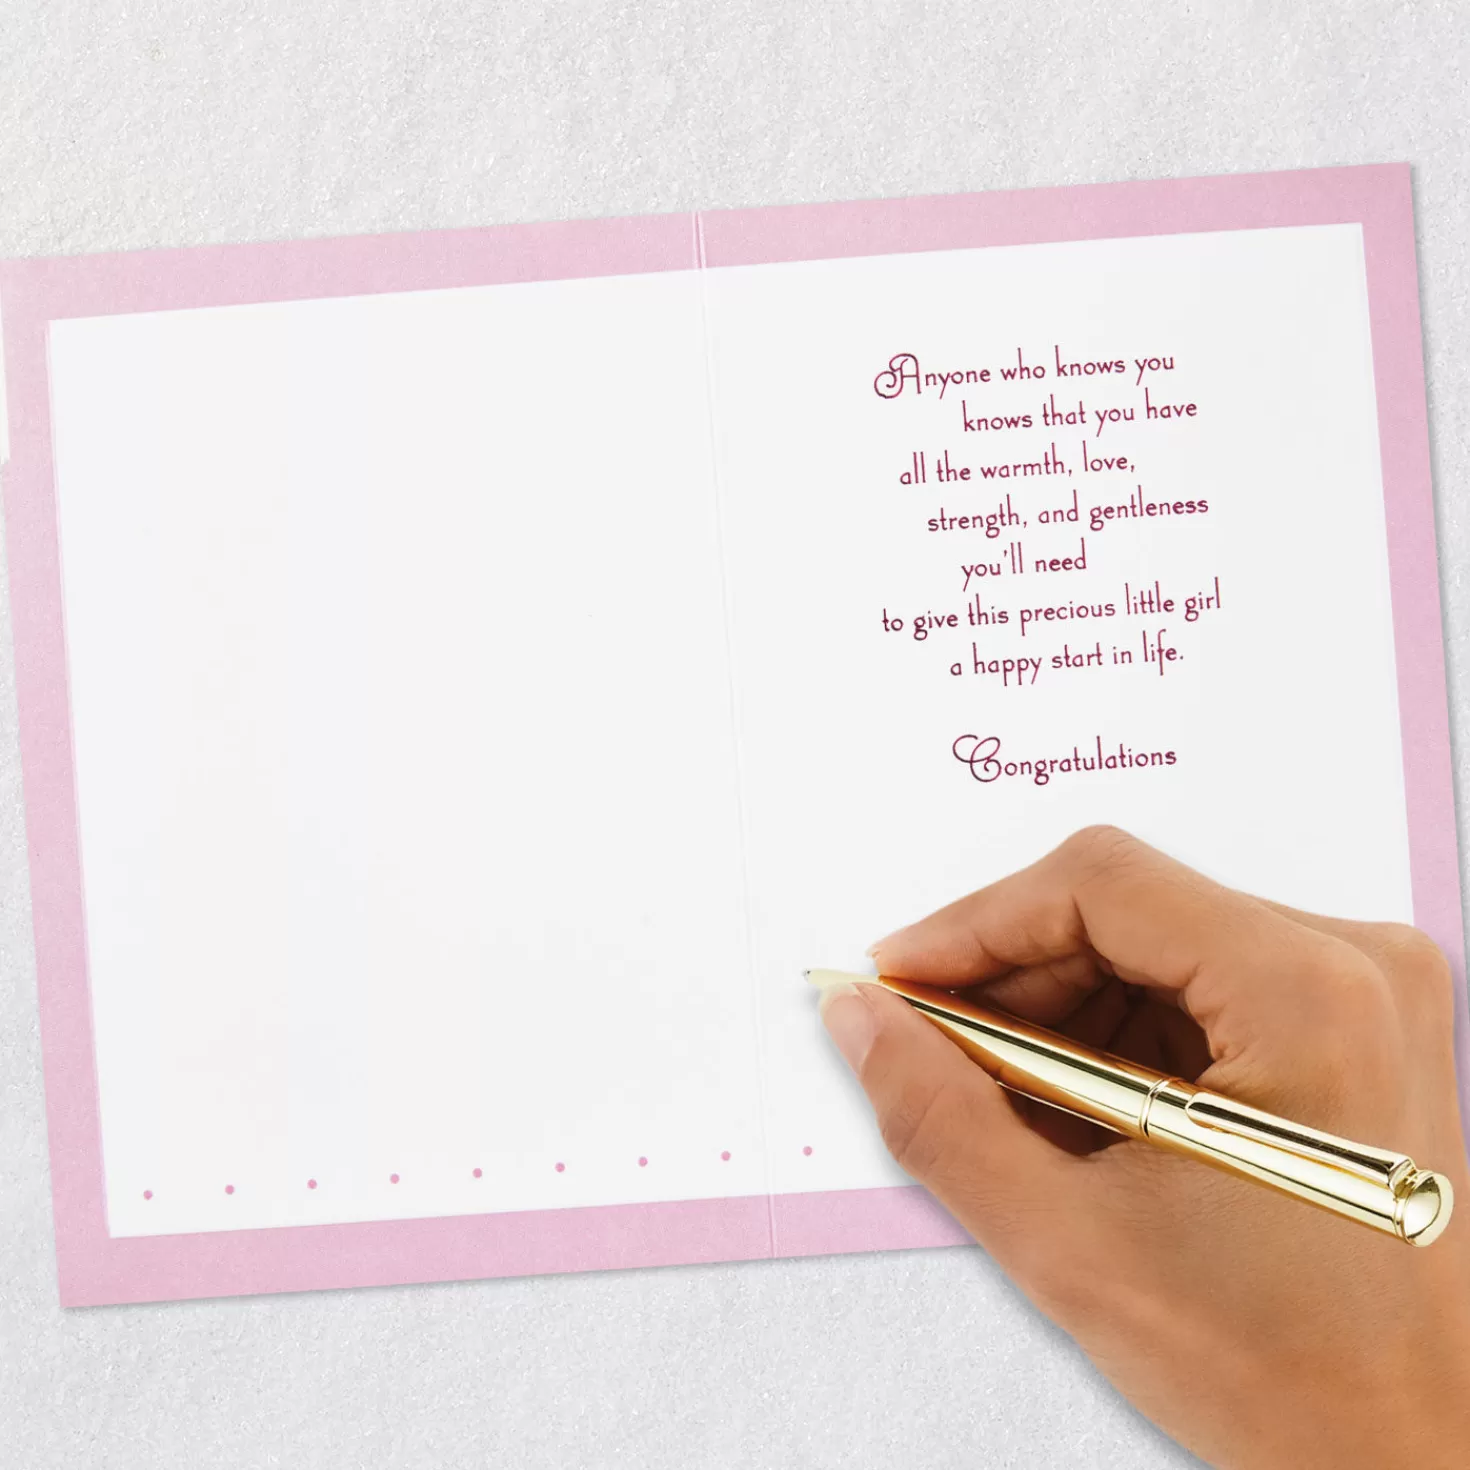 Anyone who knows you
knows that you have
all the warmth, love,
strength, and gentleness
you'll need
to give this precious little girl
a happy start in life.
Congratulations